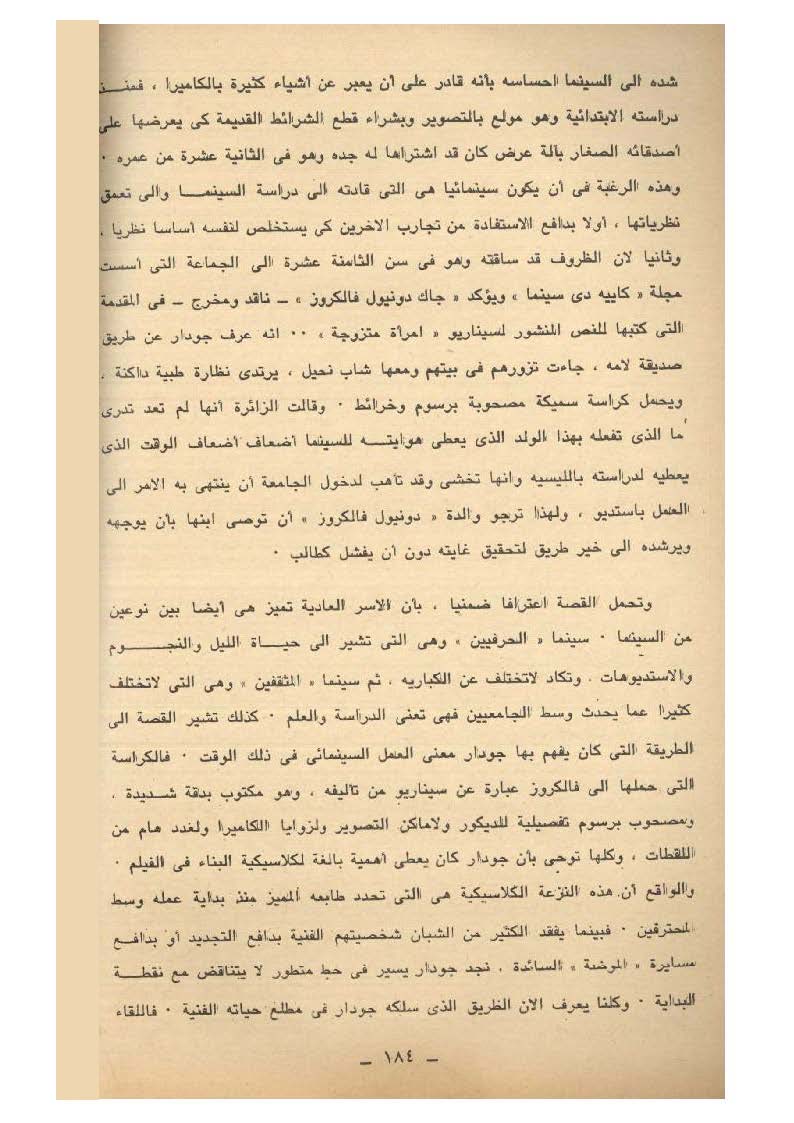 شده الى السينما احساسه بأنه قادر على أن يعبر عن أشياء كثيرة بالكاميرا ، فمنـــذ
دراسته الابتدائية وهو مولع بالتصوير وبشراء قطع الشرائط القديمة كى يعرضها على
أصدقائه الصغار بآلة عرض كان قد اشتراها له جده وهو فى الثانية عشرة من عمره ٠
وهذه الرغبة فى أن يكون سينمائيا هى التى قادته الى دراسة السينمــا والى تعمق
نظرياتها ، أولا بدافع الاستفادة من تجارب الاخرين كى يستخلص لنفسه أساسا نظريا ،
وثانيا لان الظروف قد ساقته وهو فى سن الثامنة عشرة الى الجماعة التى أسست
مجلة « كاييه دى سينما » ويؤكد « جاك دونيول فالكروز » ــ ناقد ومخرج ــ فى المقدمة
التى كتبها للنص المنشور لسيناريو « امرأة متزوجة » ٠٠ انه عرف جودار عن طريق
صديقة لامه ، جاءت تزورهم فى بيتهم ومعها شاب نحيل ، يرتدى نظارة طبية داكنة ،
ويحمل كراسة سميكة مصحوبة برسوم وخرائط ٠ وقالت الزائرة أنها لم تعد تدرى
ما الذى تفعله بهذا الولد الذى يعطى هوايتــه للسينما أضعاف أضعاف الوقت الذى
يعطيه لدراسته بالليسيه وانها تخشى وقد تأهب لدخول الجامعة أن ينتهى به الامر الى
العمل باستديو ، ولهذا ترجو والدة « دونيول فالكروز » أن توصى ابنها بأن يوجهه
ويرشده الى خير طريق لتحقيق غايته دون أن يفشل كطالب ٠
وتحمل القصة اعترافا ضمنيا ، بأن الاسر العادية تميز هى أيضا بين نوعين
من السينما ٠ سينما « الحرفيين » وهى التى تشير الى حيــاة الليل والنجــــوم
والاستديوهات ، وتكاد لاتختلف عن الكباريه ، ثم سينما « المثقفين » وهى التى لاتختلف
كثيرا عما يحدث وسط الجامعيين فهى تعنى الدراسة والعلم ٠ كذلك تشير القصة الى
الطريقة التى كان يفهم بها جودار معنى العمل السينمائى فى ذلك الوقت ٠ فالكراسة
التى حملها الى فالكروز عبارة عن سيناريو من تأليفه ، وهو مكتوب بدقة شــديدة ،
ومصحوب برسوم تفصيلية للديكور ولاماكن التصوير ولزوايا الكاميرا ولعدد هام من
اللقطات ، وكلها توحى بأن جودار كان يعطى أهمية بالغة لكلاسيكية البناء فى الفيلم ٠
والواقع أن هذه النزعة الكلاسيكية هى التى تحدد طابعه المميز منذ بداية عمله وسط
المحترفين ٠ فبينما يفقد الكثير من الشبان شخصيتهم الفنية بدافع التجديد أو بدافــع
مسايرة « الموضة » السائدة ، نجد جودار يسير فى خط متطور لا يتناقض مع نقطــة
البداية ٠ وكلنا يعرف الان الطريق الذى سلكه جودار فى مطلع حياته الفنية ٠ فاللقاء
ــ ١٨٤ ــ